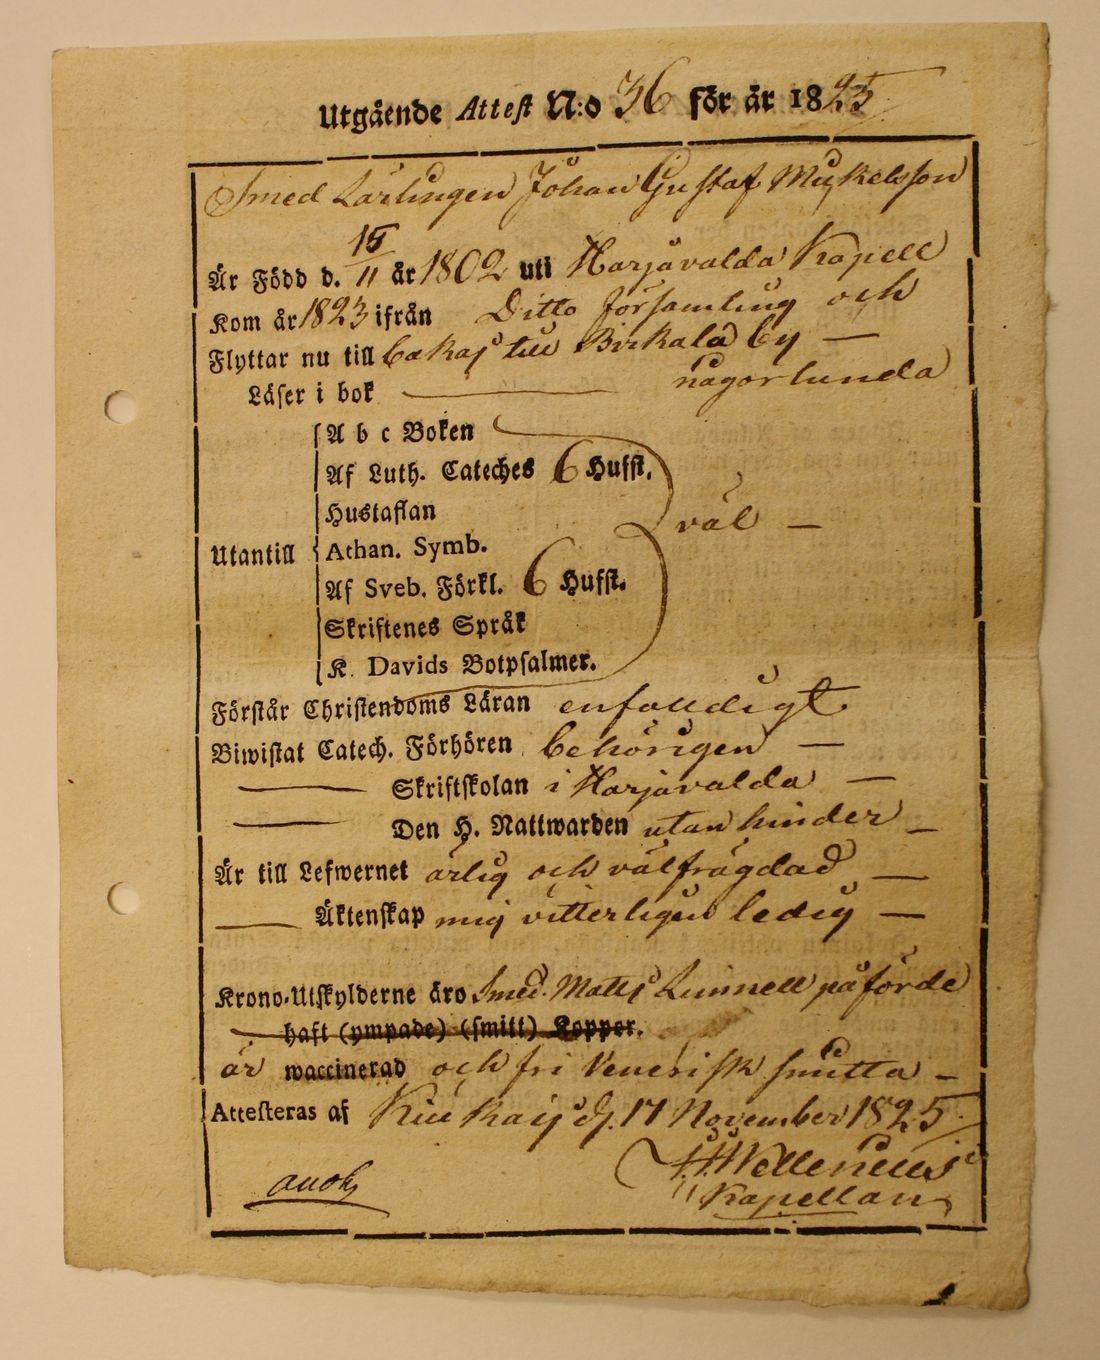 Utgående Attest N:o 36 för år 1825
Smed Lärlingen Johan Gustaf Mickelsson
Är Född d. 15/11 år 1802 uti Harjavalda Kapell
Kom år 1823 ifrån Ditto församling och
Flyttar nu till till Birkala by —
Läser i bok — någorlunda
A b c Boken
Af Luth. Cateches 6 Hufst.
Hustaflan
väl —
Utantill Athan. Symb.
Af Sveb. Förkl. 6 Hufst.
Skriftenes Språk
K. Davids Botpsalmer.
Förstår Christendoms Läran enfaldigt
Biwistat Catech. Förhören behörigen —
— Skriftskolan i Harjavalda —
— Den H. Nattwarden utan hinder —
Är till Lefwernet ärlig och välfrägdad —
— Äktenskap mig vitterligen ledig —
Krono-Utskylderne äro Smed. Matts påförde
haft (ympade) (smitt) Kopper.
är waccinerad och fri Venerisk smitta —
Attesteras af Kiukais d. 17 November 1825
Kapellan